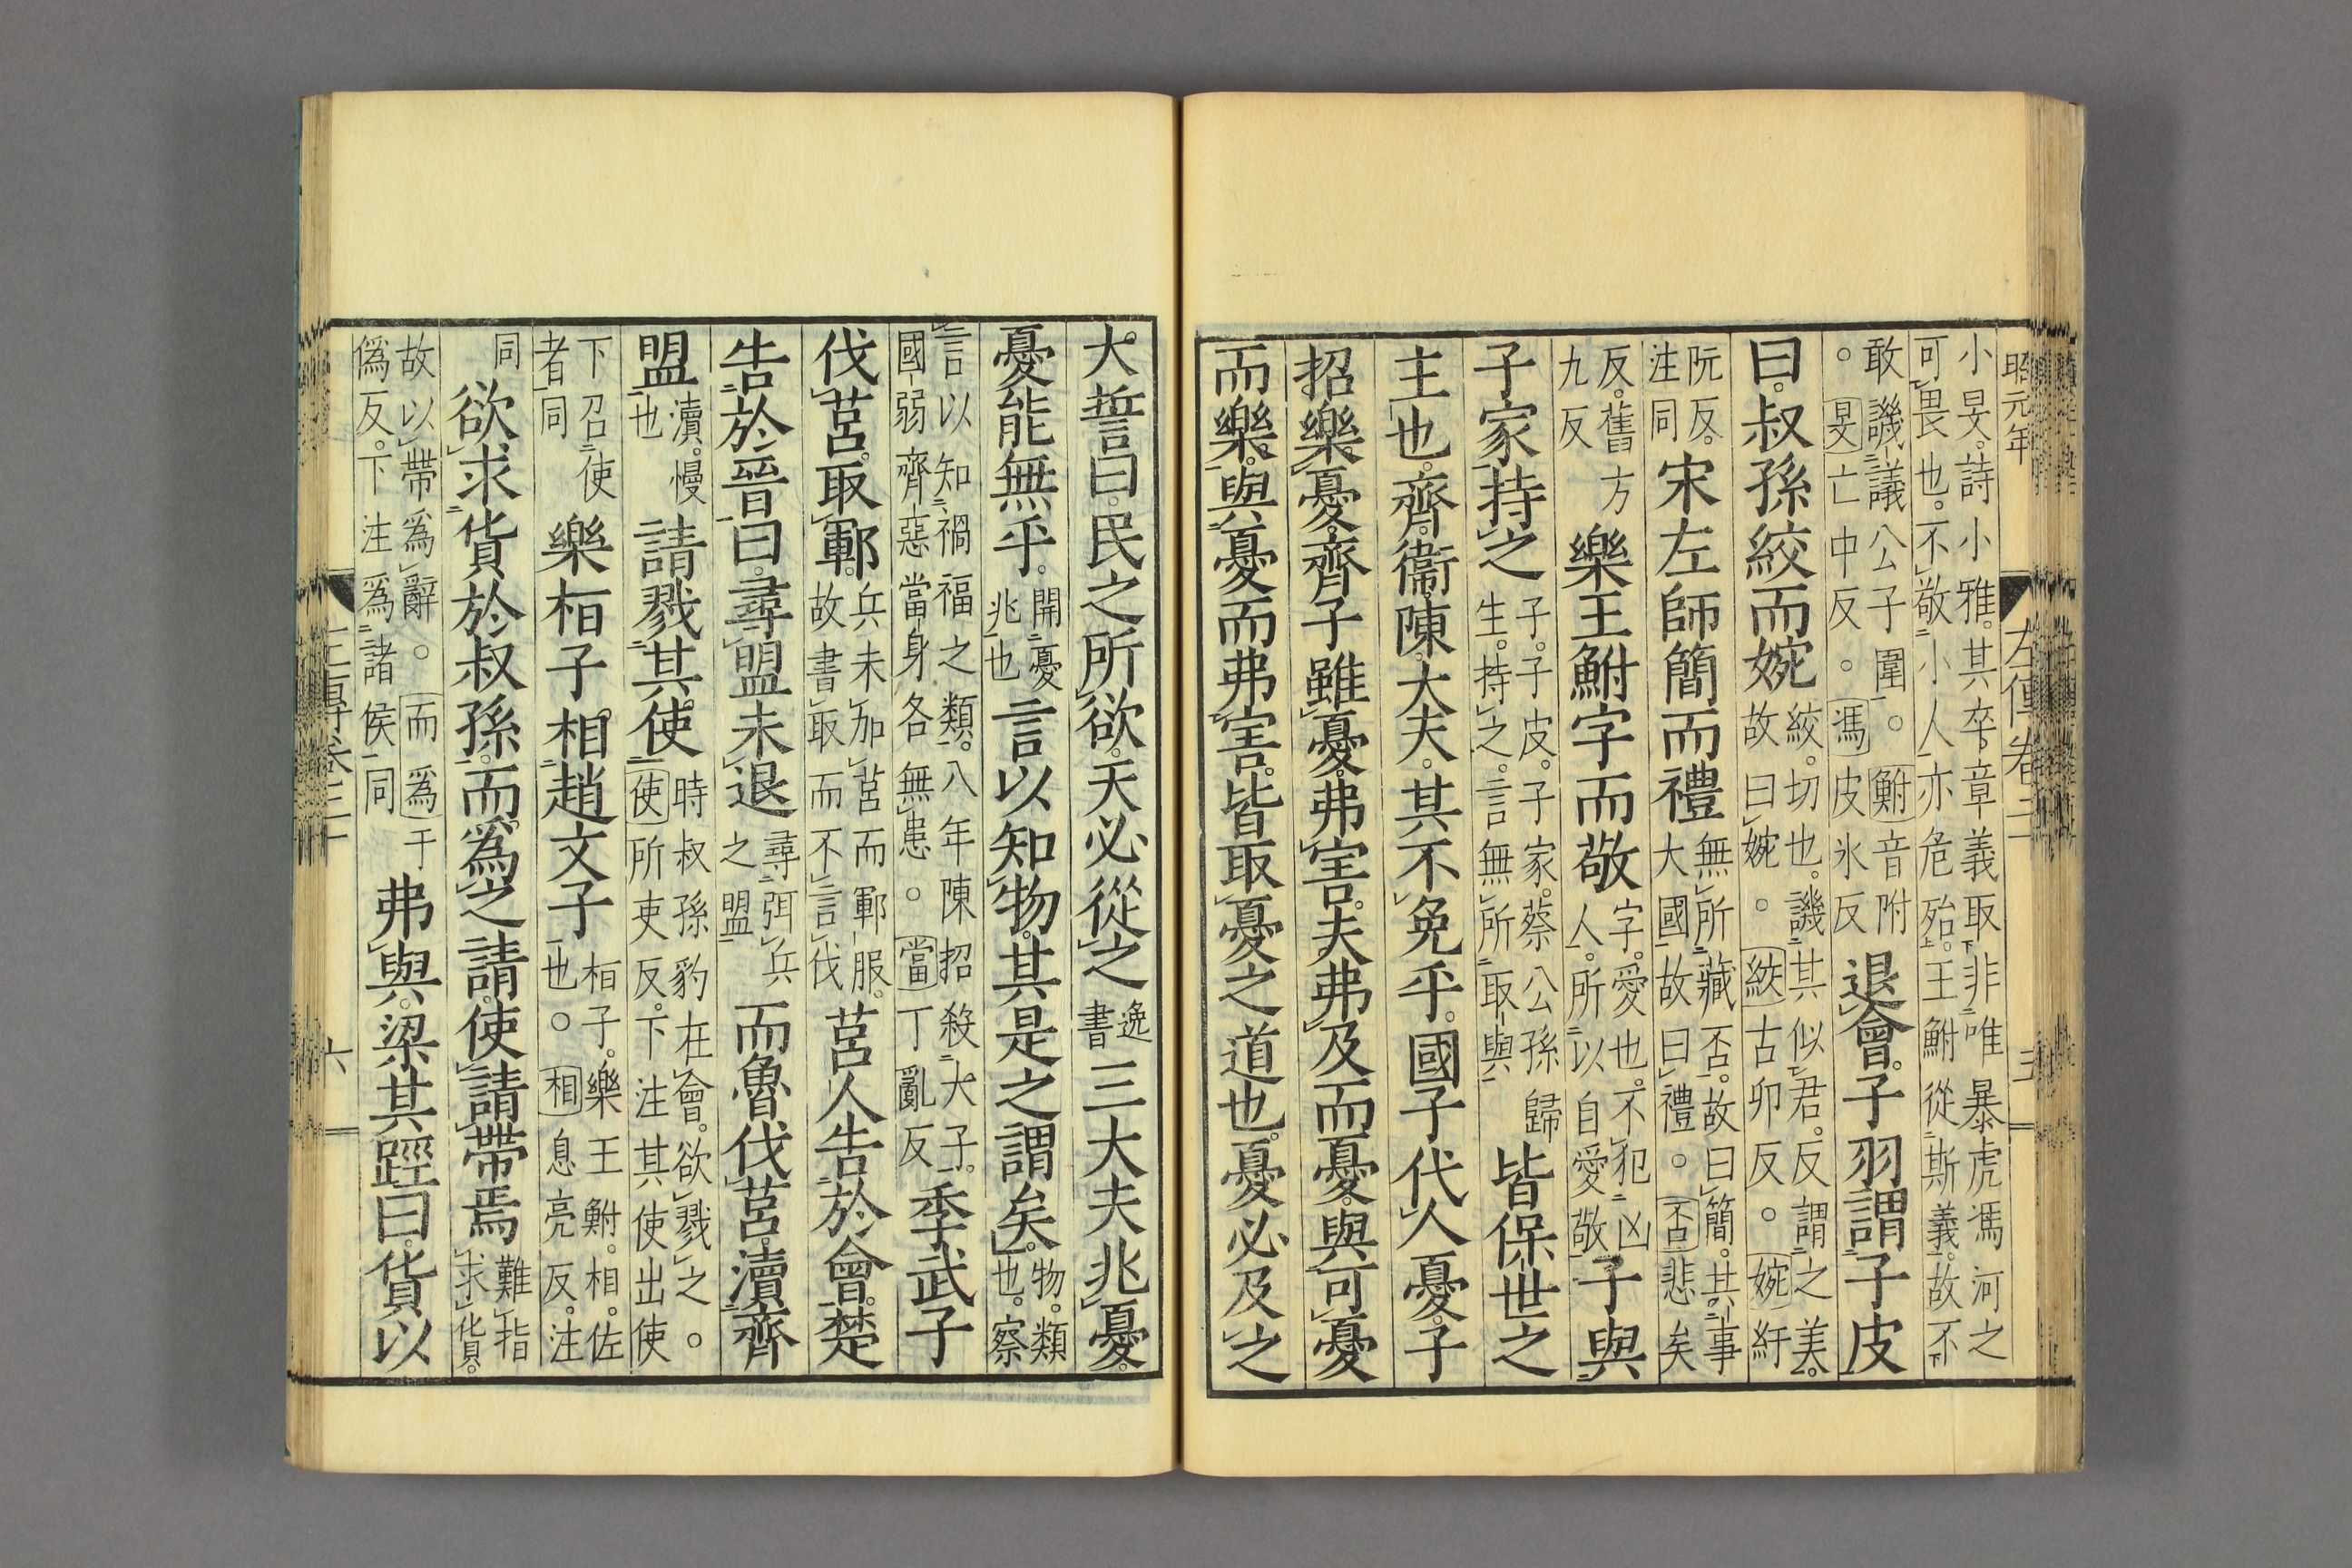 昭元年
左傳卷二
小旻。詩小雅。其卒章義取非唯暴虎馮河之
可畏也。不敬小人亦危殆。王鮒從斯義。故不
敢譏議公子圍。鮒音附
○旻亡中反。○馮皮氷反
退會。子羽謂子皮
曰。叔孫絞而婉
絞。切也。譏其似君。反謂之美。
故曰婉。○絞古卯反。○婉紆
阮反。
注同
宋左師簡而禮
無所藏否。故曰簡。共事
大國故曰禮。○否悲矣
反。舊方
九反
樂王鮒字而敬
字。愛也。不犯凶
人。所以自愛敬
子與
子家持之
子。子皮。子家。蔡公孫歸
生。持之。言無所取與
皆保世之
主也。齊。衞。陳。大夫。其不免乎。國子代人憂。子
招。樂憂。齊子雖憂。弗害。夫弗及而憂。與可憂
而樂。與憂而弗害。皆取憂之道也。憂必及之
大誓曰。民之所欲。天必從之
逸
書
三大夫兆憂。
憂能無乎。
開憂
兆也
言以知物。其是之謂矣。
物。類
也。察
言以知禍福之類。八年陳招殺大子。
國弱齊惡當身各無患。○當丁亂反
季武子
伐莒。取鄆。
兵未加莒而鄆服。
故書取而不言伐
莒人告於會。楚
告於晉曰。尋盟未退
尋弭兵
之盟
而魯伐莒。瀆齊
盟
瀆。慢
也
請戮其使
時叔孫豹在會。欲戮之。○
使所吏反。下注其使出使
下召使
者同
樂桓子相趙文子
桓子。樂王鮒。相。佐
也。○相息亮反。注
同
欲求貨於叔孫。而爲之請。使請帶焉
難指
求貨。
故以帶爲辭。○而爲于
僞反。下注爲諸侯同
弗與。梁其踁曰。貨以
六